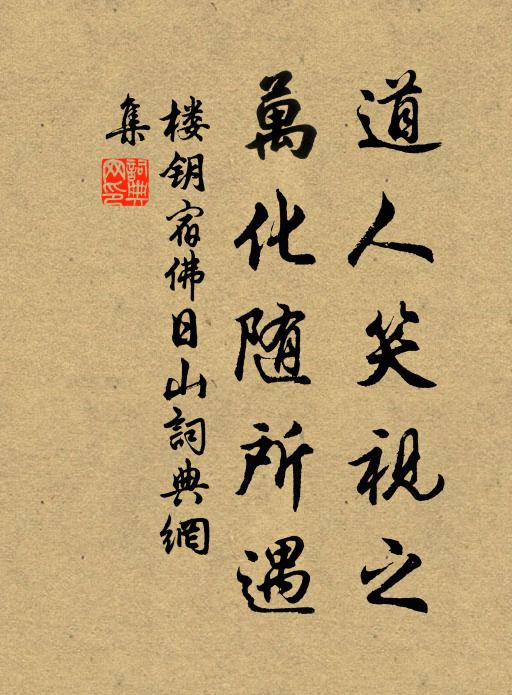 道人笑視之
萬化随所遇
楼钥宿佛日山詞典網
集
詞典
网印